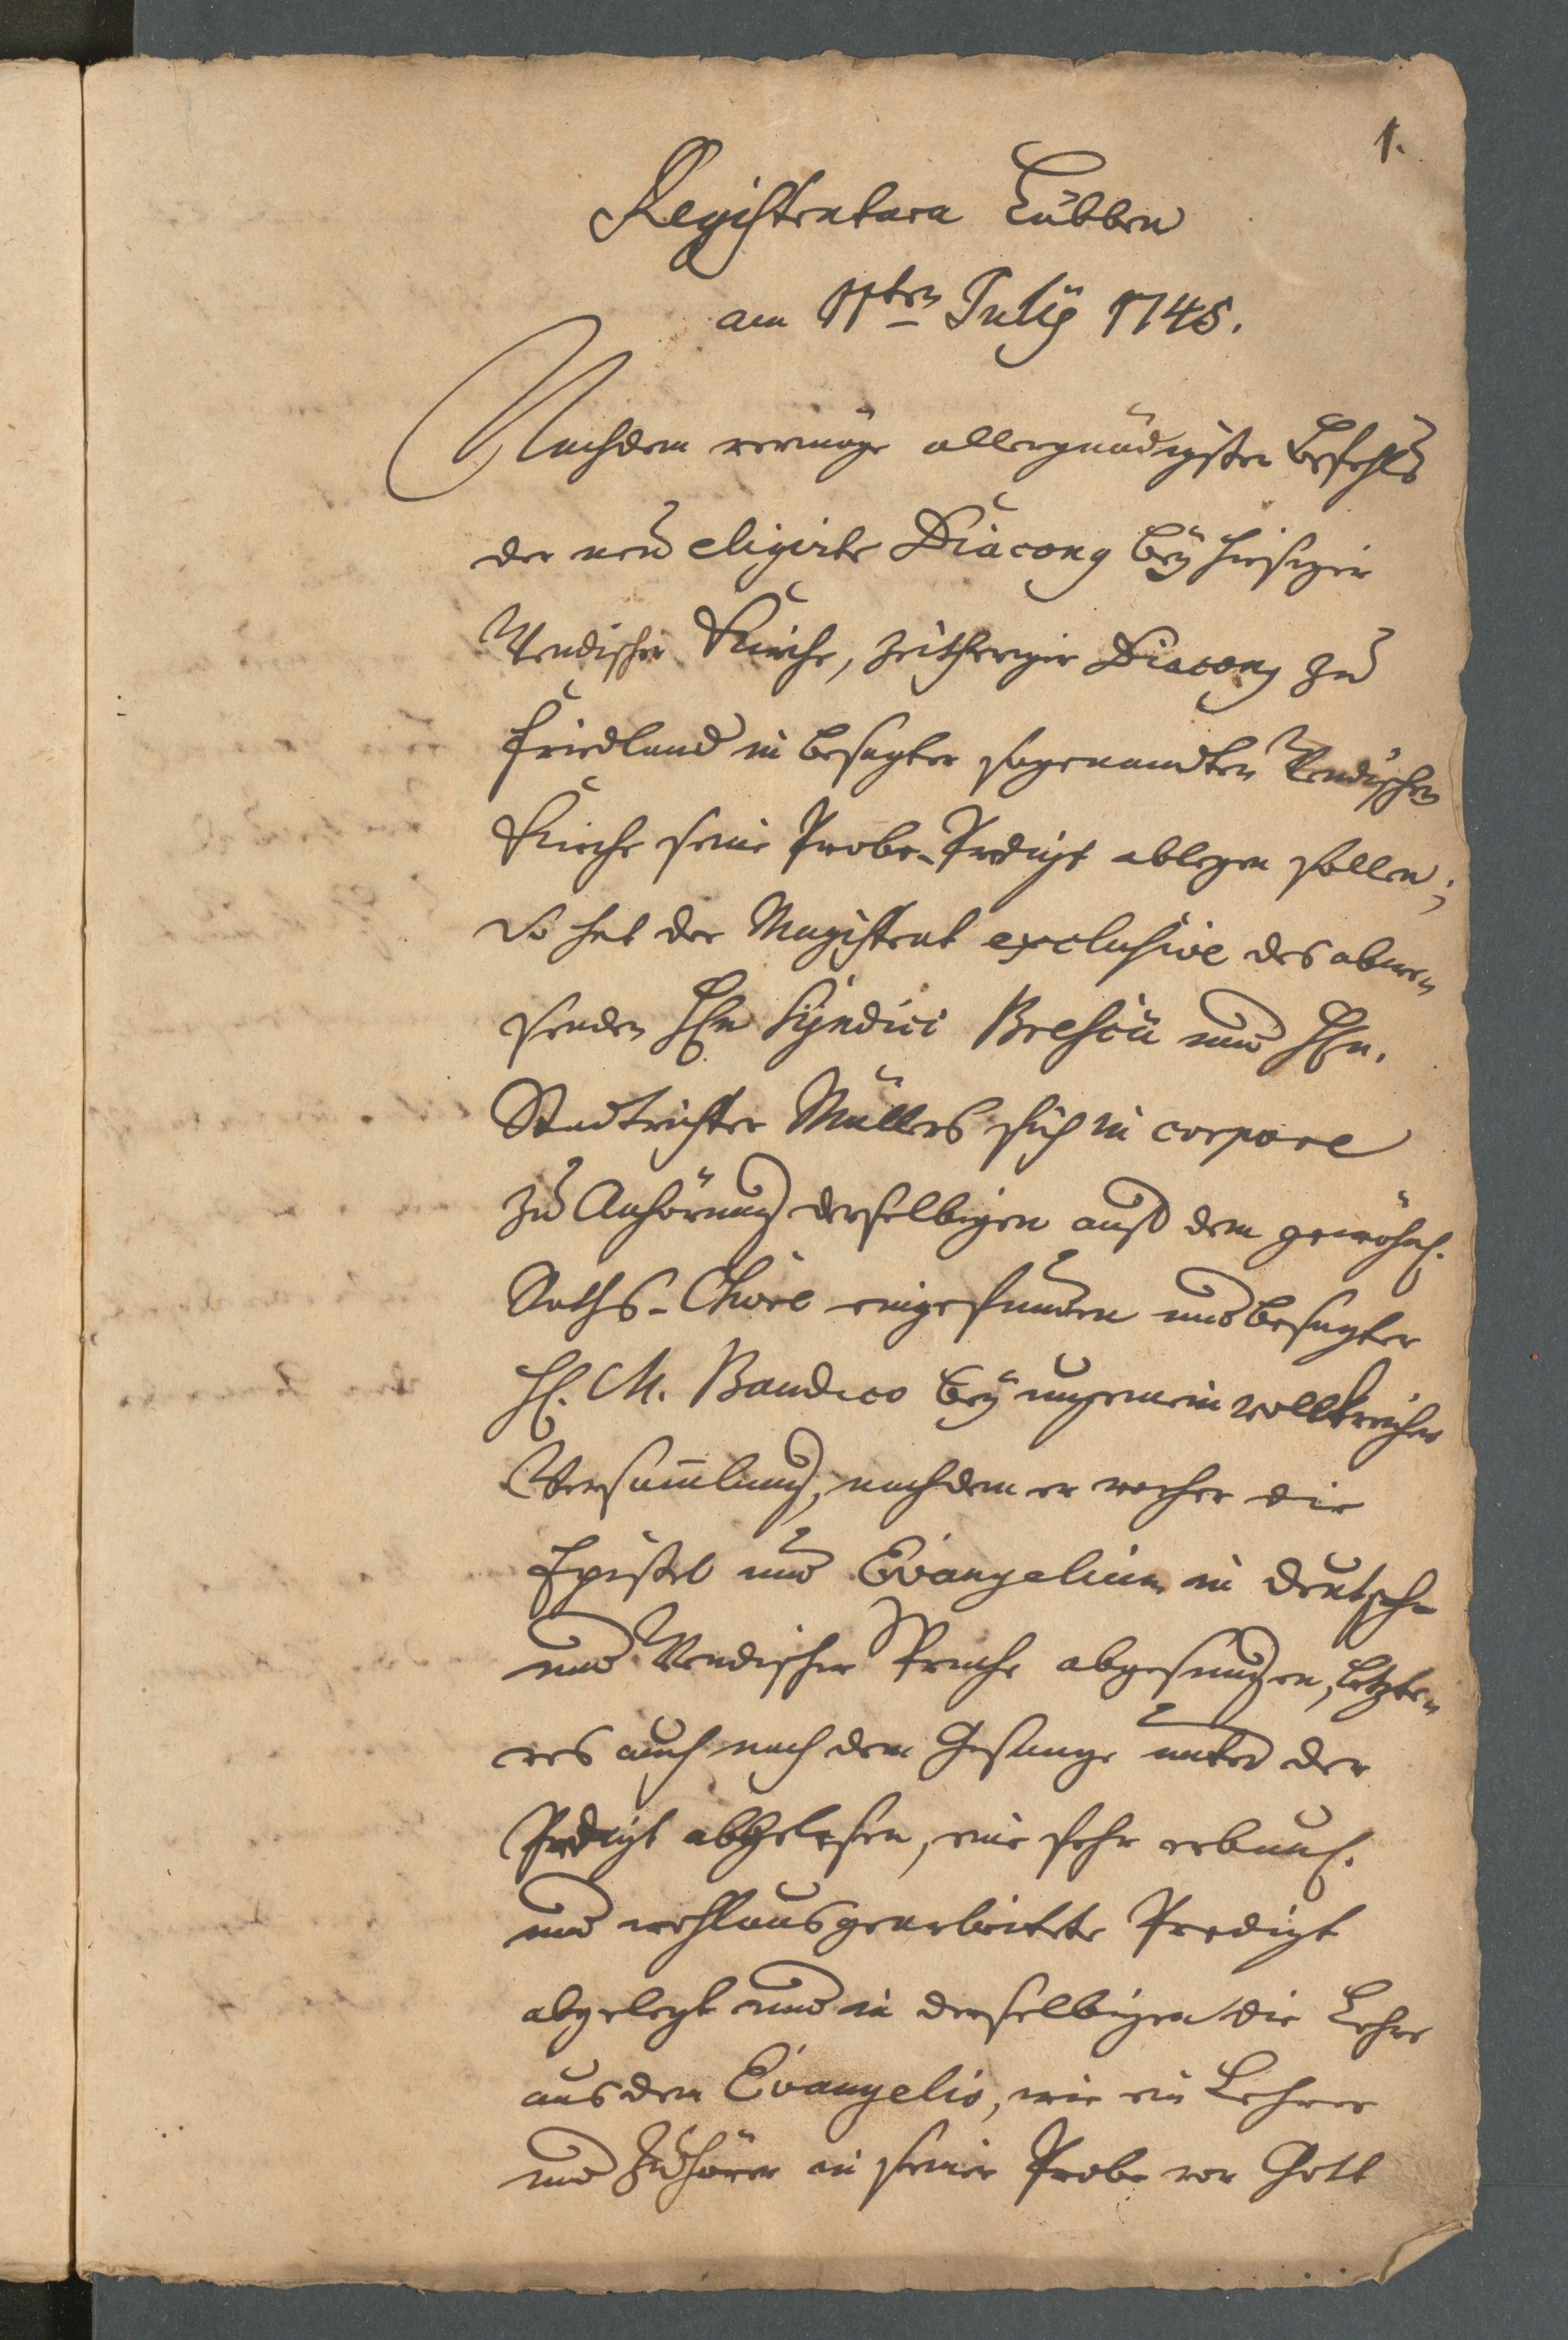 1.
Registratura Lübben
am 11ten Julÿ 1745.
Nachdem vermöge allergnädigsten Befehls
der neu eligirte Diacong beÿ hiesiger
Wendischer Kirche, zeitheriger Diacong zu
Friedland in besagter sogenandten Wendischen
Kirche seine Probe-Predigt ablegen sollen;
So hat der Magistrat exclusive des abwe¬
senden HEn Syndici Brescii und HEn.
Stadtrichter Müllers sich in corpore
zu Anhörung derselbigen auf dem gewöhnl.
Raths-Chore eingefunden und besagter
H. M. Baudico beÿ ungemein vollkreicher
Versam̅lung, nachdem er vorher die
Epistel und Evangelium in deutsch-
und Wendischer Sprache abgesungen, letzte¬
res auch nach dem Gesange unter der
Predigt abgelesen, eine sehr erbaul.
und wohlausgearbeitete Predigt
abgelegt und in derselbigen die Lehre
aus dem Evangelio, wie ein Lehrer
und Zuhörer in seiner Probe vor Gott